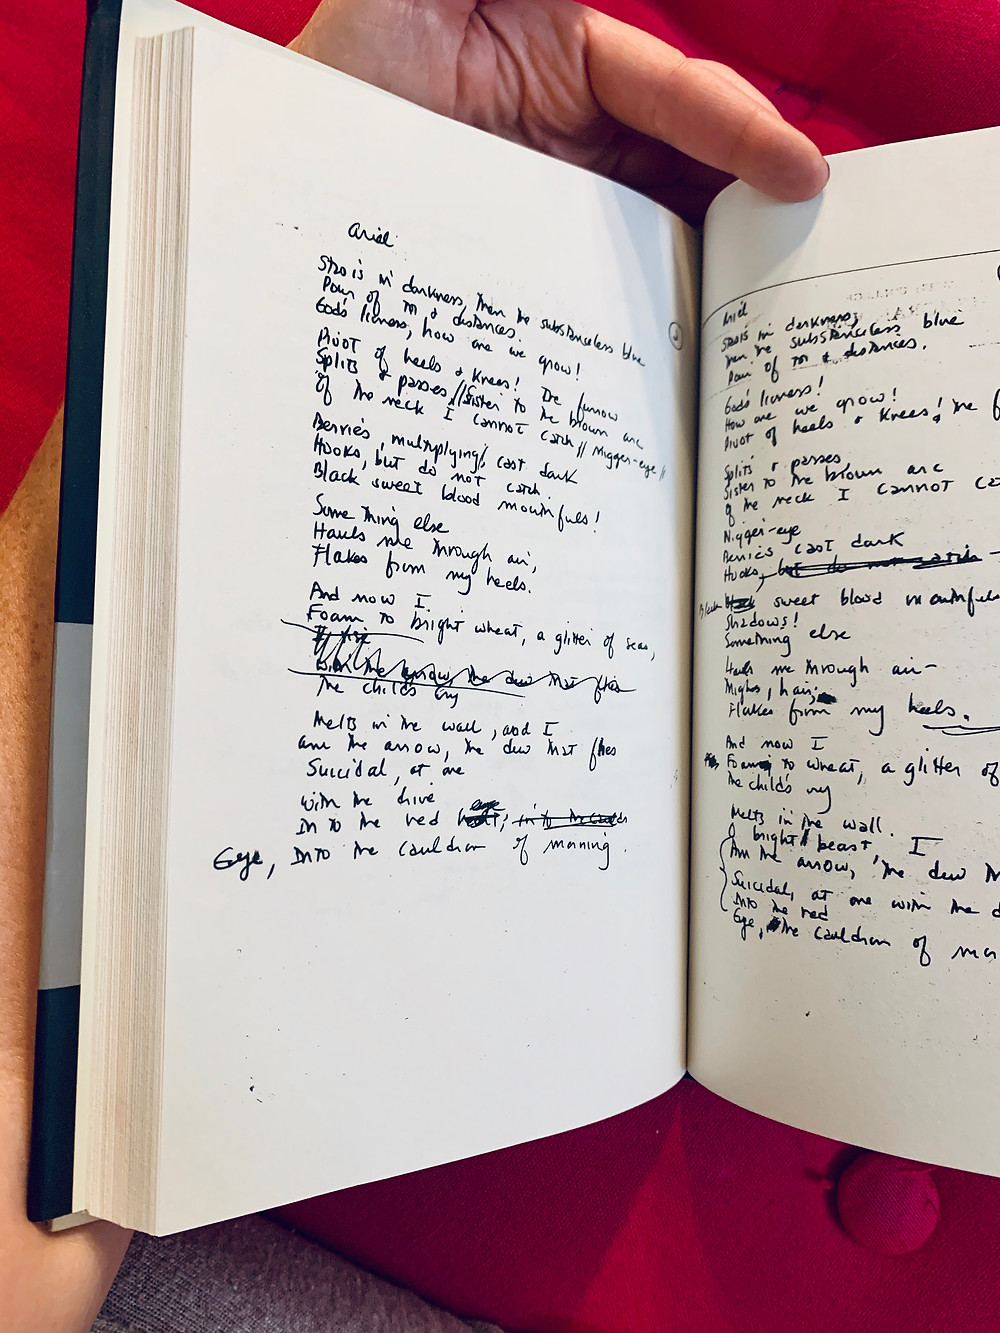 Ariel
Stasis in darkness, then the substanceless blue
Pour of tor & distances.
God's lioness, how one we grow!
Pivot of heels & knees! The furrow
Splits & passes, // Sister to the brown arc
Of the neck I cannot catch // Nigger-eye //
Berries, multiplying, cast dark
Hooks, but do not catch.
Black sweet blood mouthfuls!
Something else
Hauls me through air,
Flakes from my heels.
And now I
Foam to bright wheat, a glitter of seas,
I rise
With the arrow, the dew that flies
The child's cry
Melts in the wall, and I
am the arrow, the dew that flies
Suicidal, at one
with the drive
Into the red eye, into the
Eye, Into the cauldron of morning.
2
Ariel
Stasis in darkness,
Then the substanceless blue
Pour of tor & distances.
God's lioness!
How one we grow!
Pivot of heels & knees! The
Splits & passes,
Sister to the brown arc
Of the neck I cannot
Nigger-eye
Berries cast dark
Hooks, but do not catch
Black sweet blood mouthfuls
Shadows!
Something else
Hauls me through air—
Thighs, hair;
Flakes from my heels.
And now I
Foam to wheat, a glitter of
The child's cry
Melts in the wall.
O bright // beast, I
Am the arrow, the dew
Suicidal, at one with the
Into the red
Eye, the cauldron of